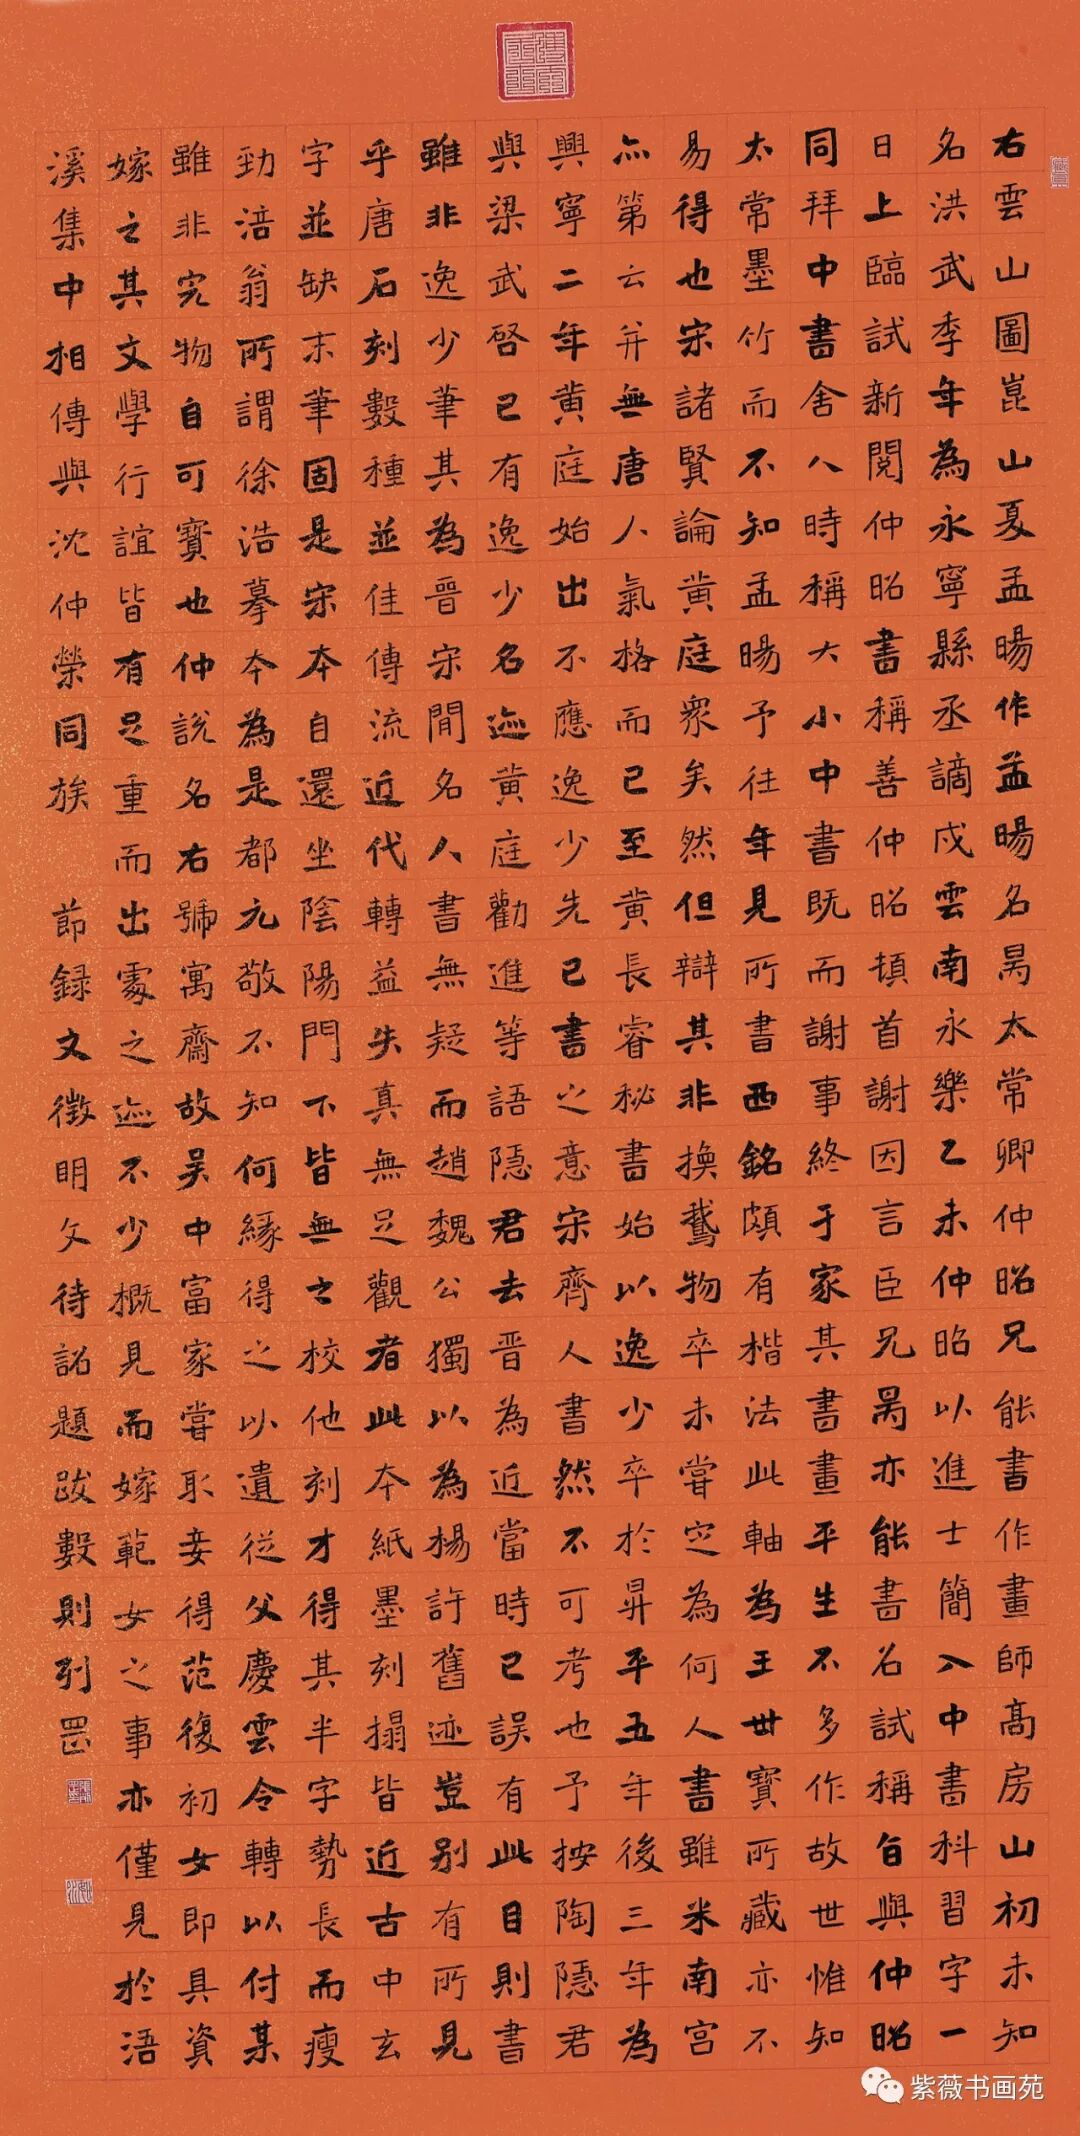 右雲山圖崑山夏孟暘作孟暘名昺太常卿仲昭兄能書作畫師高房山初未知
名洪武季年為永寧縣丞謫戍雲南永樂乙未仲昭以進士簡入中書科習字一
日上臨試新閱仲昭書稱善仲昭頓首謝因言臣兄昺亦能書名試稱旨與仲昭
同拜中書舍人時稱大小中書既而謝事終于家其書畫平生不多作故世惟知
太常墨竹而不知孟暘予往年見所書西銘頗有楷法此軸為王世寶所藏亦不
易得也宋諸賢論黃庭衆矣然但辯其非換鵞物卒未嘗定為何人書雖米南宮
亦第云并無唐人氣格而已至黃長睿秘書始以逸少卒於昇平五年後三年為
興寧二年黃庭始出不應逸少先已書之意宋齊人書然不可考也予按陶隱君
與梁武啓已有逸少名迹黃庭勸進等語隱君去晉為近當時已誤有此目則書
雖非逸少筆其為晉宋間名人書無疑而趙魏公獨以為楊許舊迹豈别有所見
乎唐石刻數種並佳傳流近代轉益失真無足觀者此本紙墨刻搨皆近古中玄
字並缺末筆固是宋本自還坐陰陽門下皆無之校他刻才得其半字勢長而瘦
勁涪翁所謂徐浩摹本為是都元敬不知何緣得之以遺從父慶雲令轉以付某
雖非究物自可寶也仲說名右號寓齋故吳中富家嘗取妾得范復初女即具資
嫁之其文學行誼皆有足重而出處之迹不少概見而嫁範女之事亦僅見於浯
溪集中相傳與沈仲榮同族 節録文徵明文待詔題跋數則列罡
紫薇书画苑